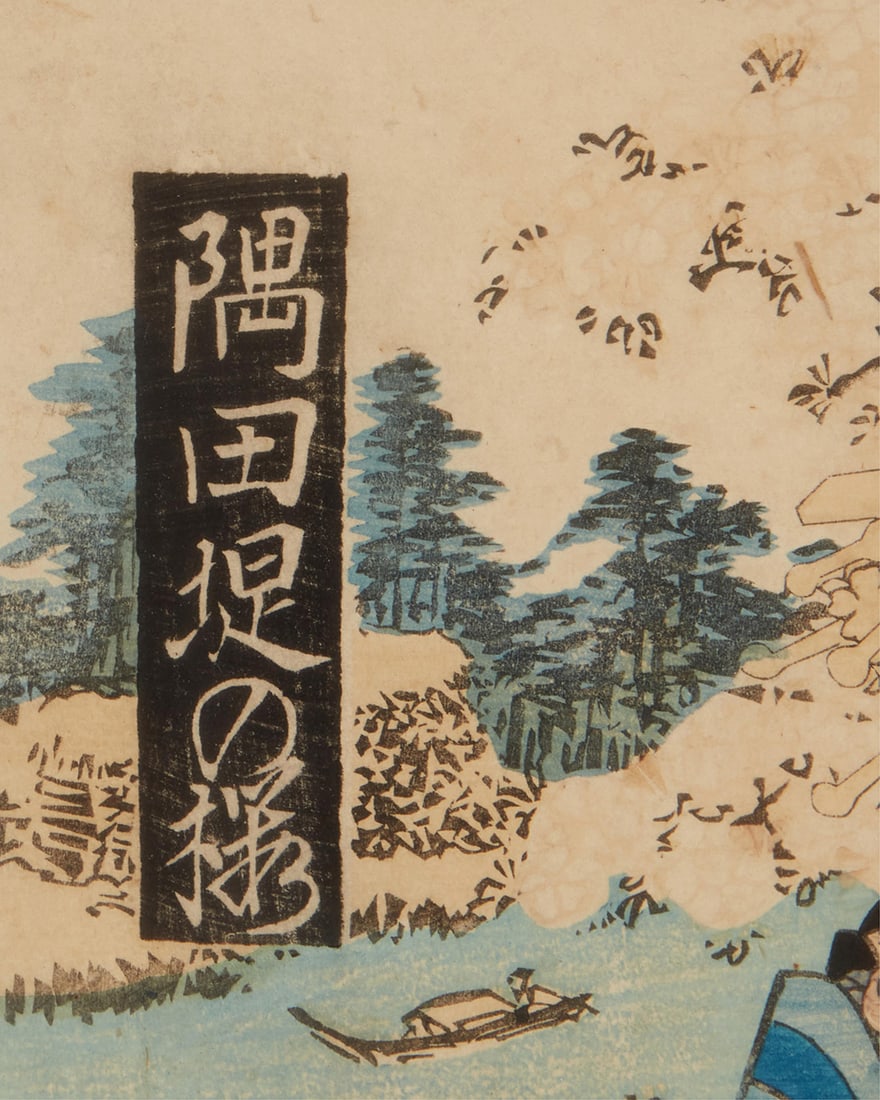 隅田堤の桜